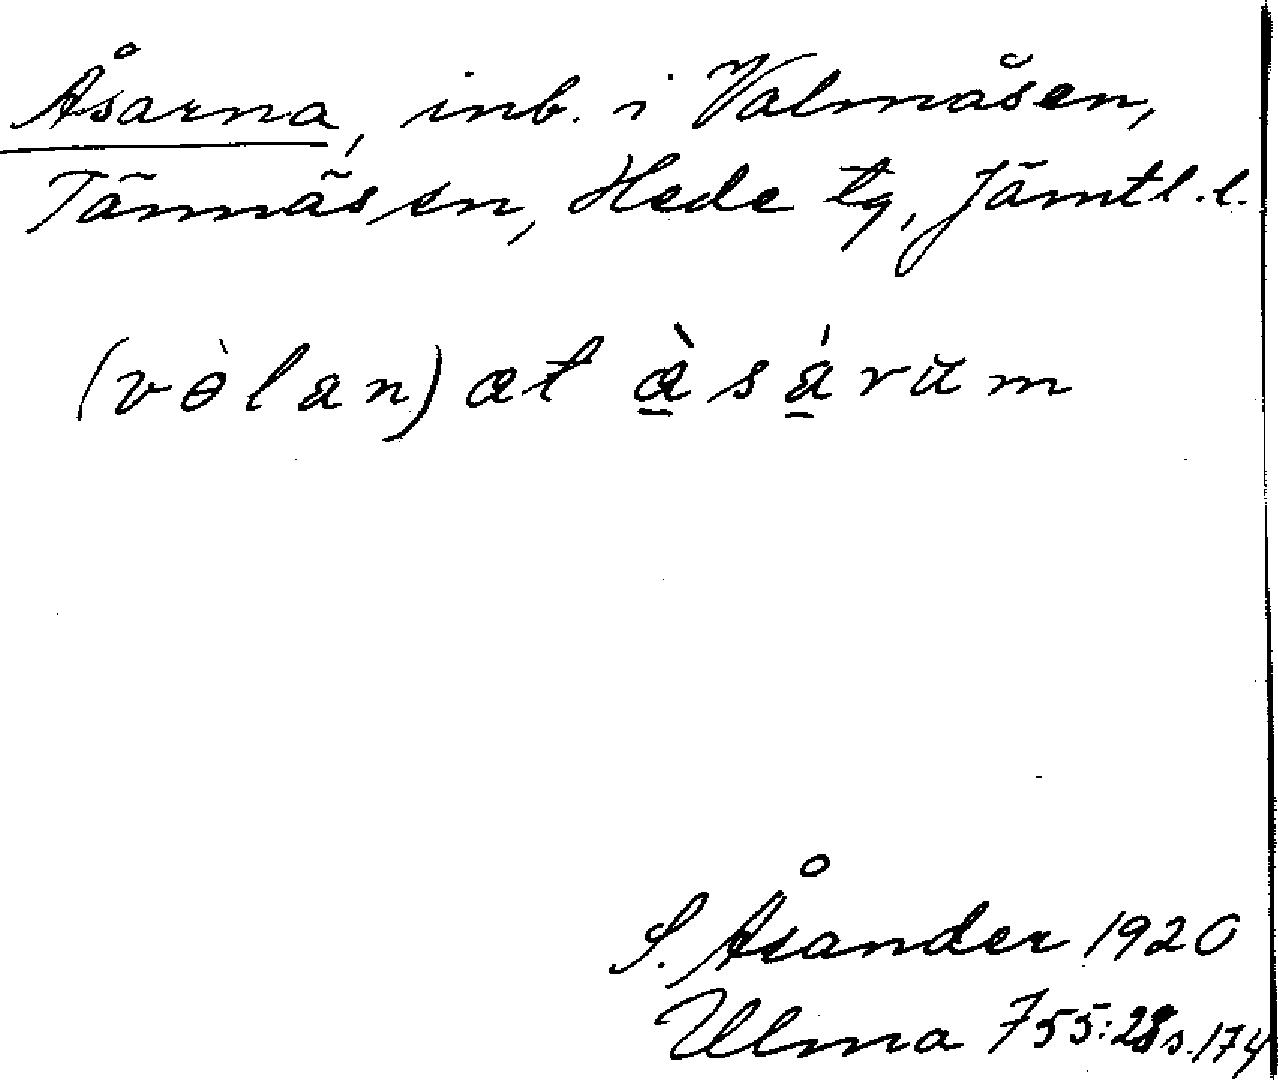 Åsarna, inb. i Valmåsen,
Tännäs sn, Hede tg, Jämtl. l.
(vòlan) æt æ̠̀sá̠rŭm
S. Åsander 1920
Ulma 755:28 s. 174